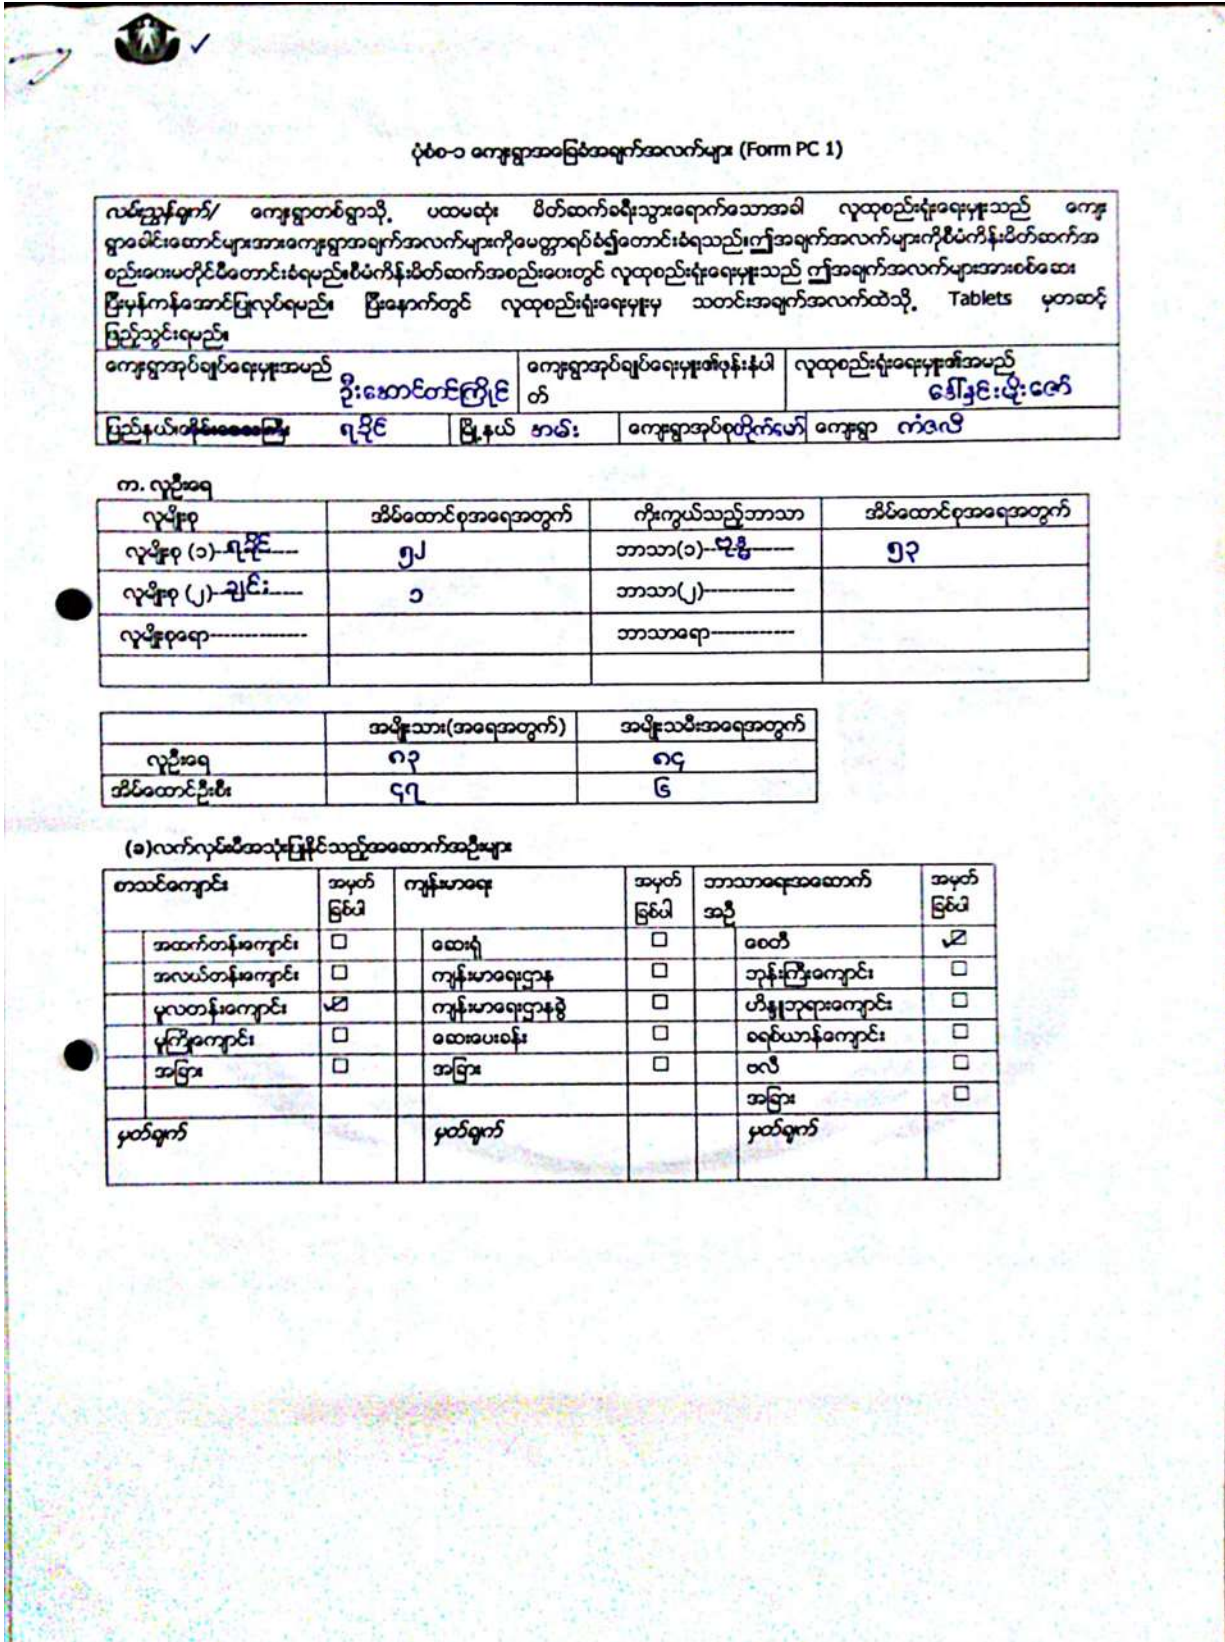 ပုံစံစ-၁ ကျေးရွာအခြေခံအချက်အလက်များ (Form PC 1)
လမ်းညွှန်ချက်/ ကျေးရွာတစ်ရွာသို့ ပထမဆုံး မိတ်ဆက်ခရီးသွားရောက်သောအခါ လူထုစည်းရုံးရေးမှူးသည် ကျေး
ရွာခေါင်းဆောင်များအားကျေးရွာအချက်အလက်များကိုမေတ္တာရပ်ခံ၍တောင်းခံရသည်။ဤအချက်အလက်များကိုစီမံကိန်းမိတ်ဆက်အ
စည်းဝေးမတိုင်မီတောင်းခံရမည်။စီမံကိန်းမိတ်ဆက်အစည်းဝေးတွင် လူထုစည်းရုံးရေးမှူးသည် ဤအချက်အလက်များအားစစ်ဆေး
ပြီးမှန်ကန်အောင်ပြုလုပ်ရမည်။ ပြီးနောက်တွင် လူထုစည်းရုံးရေးမှူးမှ သတင်းအချက်အလက်ထဲသို့ Tablets မှတဆင့်
ဖြည့်သွင်းရမည်။
ကျေးရွာအုပ်ချုပ်ရေးမှူးအမည် ဦးအောင်တင်ကြိုင် ကျေးရွာအုပ်ချုပ်ရေးမှူး၏ဖုန်းနံပါတ် လူထုစည်းရုံးရေးမှူး၏အမည် ဒေါ်နှင်းမိုးဇော်
ပြည်နယ်/တိုင်းဒေသကြီး ရခိုင် မြို့နယ် အမ်း ကျေးရွာအုပ်စု တိုက်မော် ကျေးရွာ ကံဇလီ
က. လူဦးရေ
လူမျိုးစု အိမ်ထောင်စုအရေအတွက် ကိုးကွယ်သည့်ဘာသာ အိမ်ထောင်စုအရေအတွက်
လူမျိုးစု (၁)--ရခိုင်---- ၅၂ ဘာသာ(၁)--ဗုဒ္ဓ------ ၅၃
လူမျိုးစု (၂)--ချင်း---- ၁ ဘာသာ(၂)------------
လူမျိုးစုရော-------------- ဘာသာရော------------
အမျိုးသား(အရေအတွက်) အမျိုးသမီးအရေအတွက်
လူဦးရေ ၈၃ ၈၄
အိမ်ထောင်ဦးစီး ၄၇ ၆
(ခ)လက်လှမ်းမီအသုံးပြုနိုင်သည့်အဆောက်အဦးများ
စာသင်ကျောင်း အမှတ်ခြစ်ပါ ကျန်းမာရေး အမှတ်ခြစ်ပါ ဘာသာရေးအဆောက်အဦ အမှတ်ခြစ်ပါ
အထက်တန်းကျောင်း ☐ ဆေးရုံ ☐ စေတီ ☑
အလယ်တန်းကျောင်း ☐ ကျန်းမာရေးဌာန ☐ ဘုန်းကြီးကျောင်း ☐
မူလတန်းကျောင်း ☑ ကျန်းမာရေးဌာနခွဲ ☐ ဟိန္ဒူဘုရားကျောင်း ☐
မူကြိုကျောင်း ☐ ဆေးပေးခန်း ☐ ခရစ်ယာန်ကျောင်း ☐
အခြား ☐ အခြား ☐ ဗလီ ☐
အခြား ☐
မှတ်ချက် မှတ်ချက် မှတ်ချက်